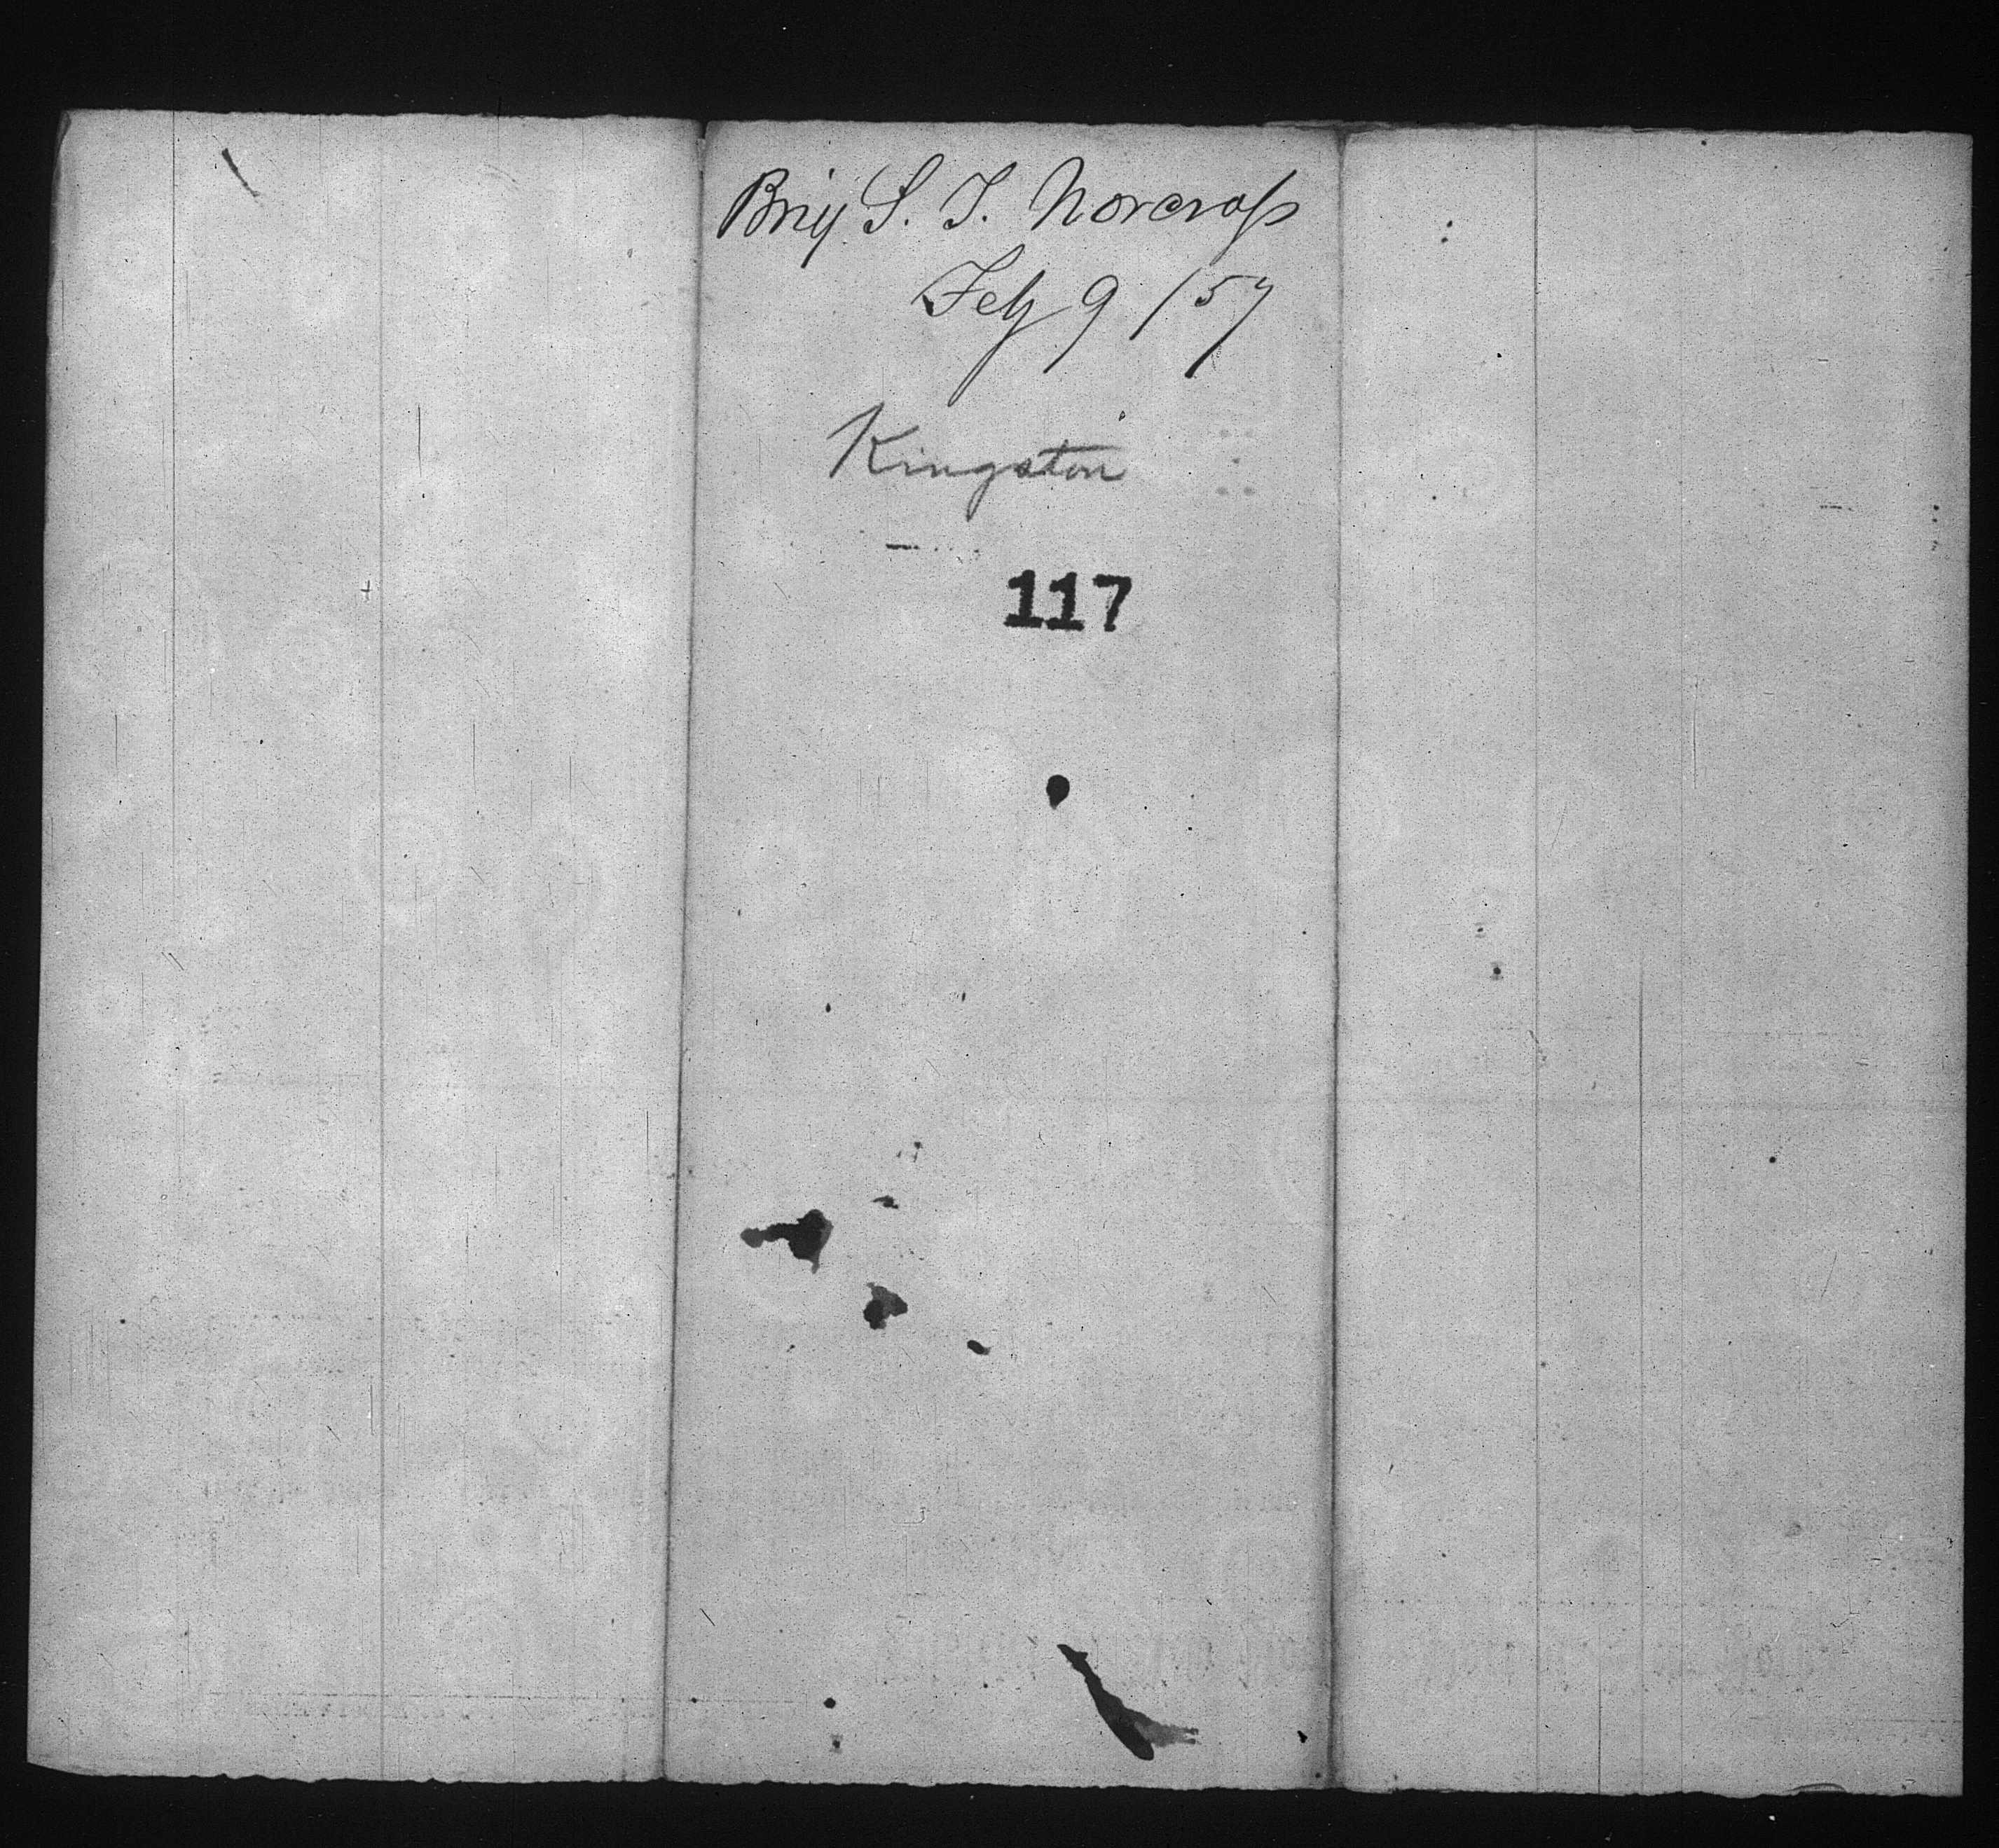 Brig S. T. Norcross
Feby 9 /57
Kingston
117